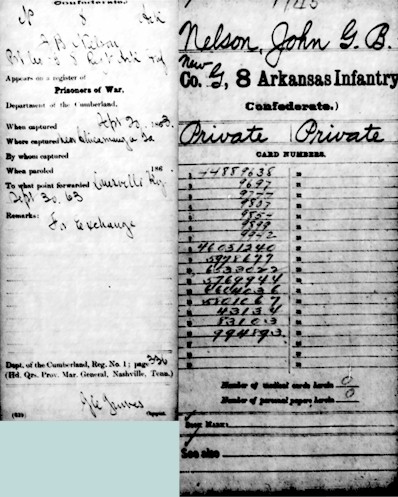 Confederate.
N 8 Ark
J B Nelson
Appears on a register of
Prisoners of War,
Department of the Cumberland.
When captured Sept 20, 1863.
Where captured Chicamauga Ga
By whom captured
When paroled , 186
To what point forwarded Louisville Ky.
Sept 30, 63
Remarks:
For Exchange
Dept. of the Cumberland, Reg. No. 1; page 336
(Hd. Qrs. Prov. Mar. General, Nashville, Tenn.)
Copyist.
Nelson, John G. B.
New
Co. G, 8 Arkansas Infantry
Confederate.)
Private Private
CARD NUMBERS.
1 44889638
2 9697
3
4 9837
5
6 9899
7 9942
8 46051240
9
10
11 5769944
12
13 5801067
14 43134
15 83103
16 994893
Number of medical cards herein 0
Number of personal papers herein 0
BOOK MARK:
See also